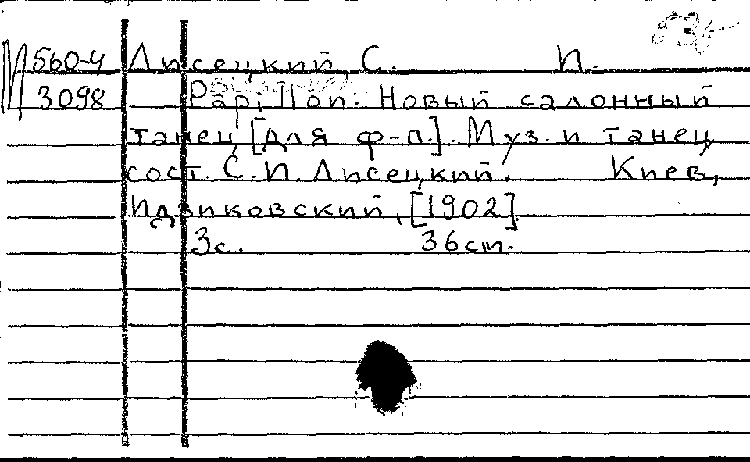 М 560-4 Лисецкий, С. И.
3098 Papillon. Новый салонный
танец [для ф-п.]. Муз. и танец
сост. С.И. Лисецкий. Киев,
Идзиковский, [1902].
3 с. 36 cm.